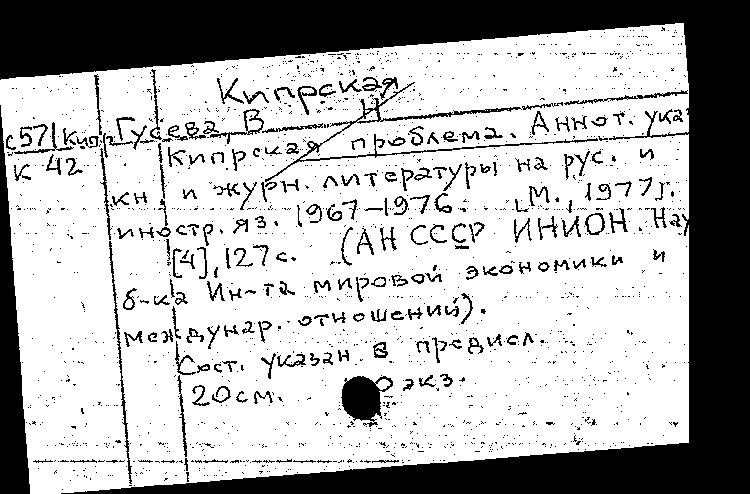 Кипрская
с571Кипр Гусева, В Н
К 42 Кипрская проблема. Аннот. указ
кн. и журн. литературы на рус. и
иностр. яз. 1967–1976. [М., 1977].
[4], 127 с. (АН СССР ИНИОН. Нау
б-ка Ин-та мировой экономики и
междунар. отношений).
Сост. указан в предисл.
20см. экз.